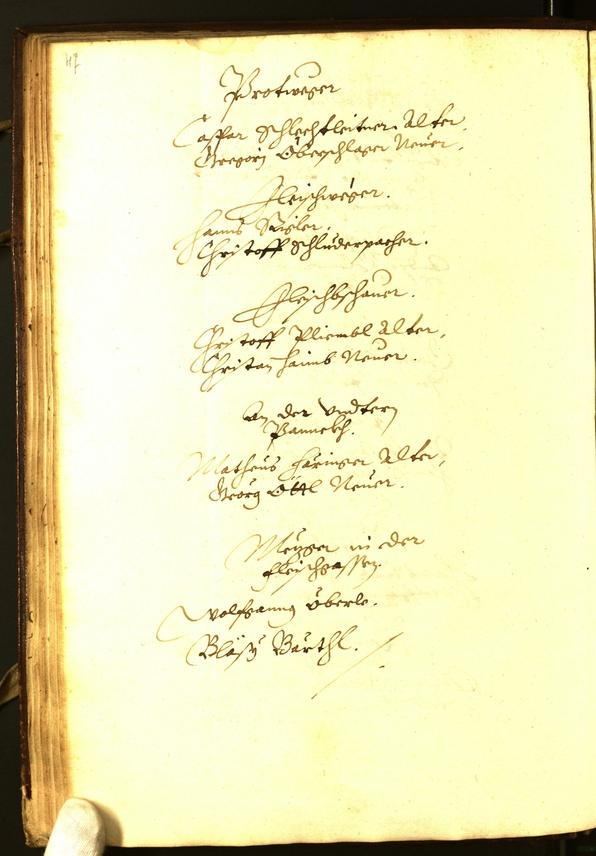 47
Protweger
Caspar Schlechtleitner Alter,
Gregorj Oberschlager Neuer,
Fleischweger.
Hanns Rigler,
Christoff Schluderpacher.
Fleischbschauer.
Christoff Pliembl Alter,
Christan Haimb Neuer.
An der vndtern
Pannckh.
Matheus Häringer Alter,
Georg Öttl Neuer.
Mezger in der
fleischgassen.
Wolfganng Öberle.
Bläsy Bärthl.